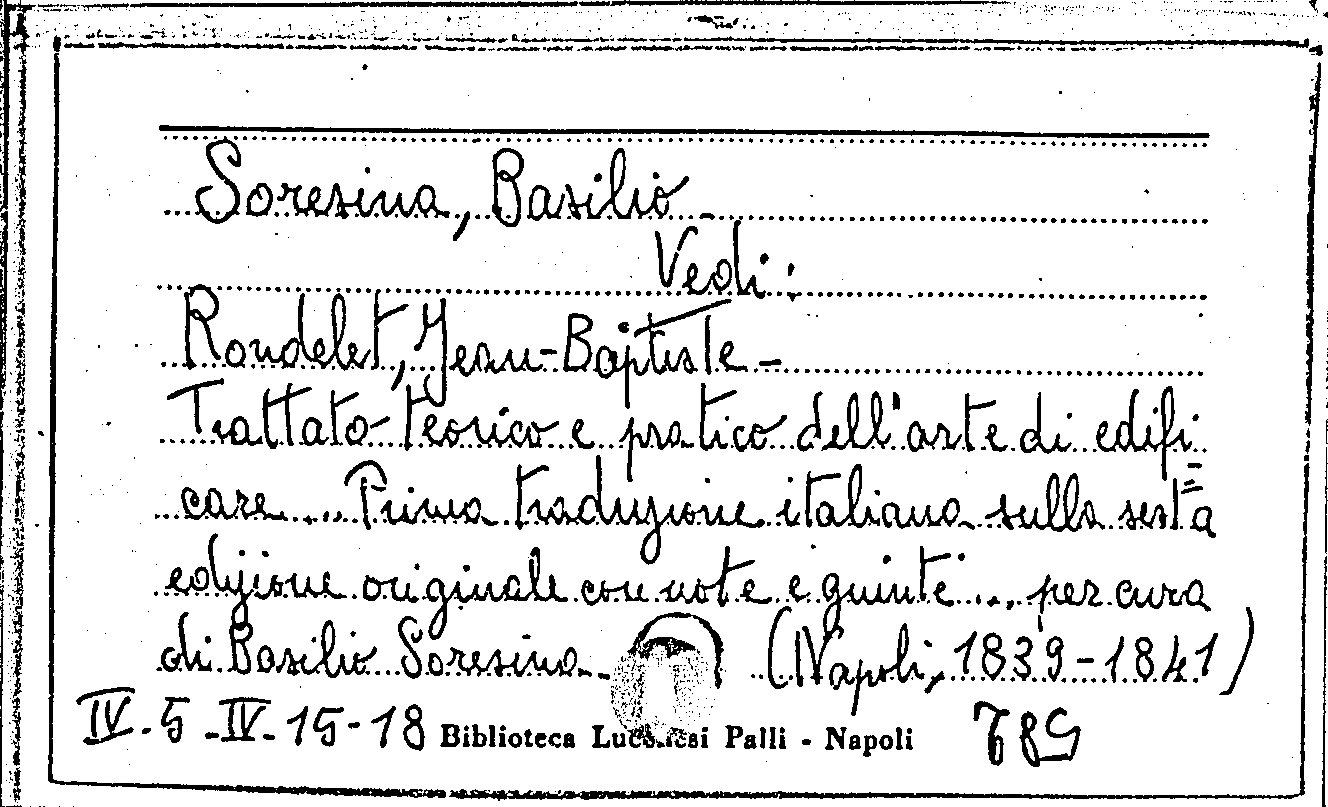 Soresina, Basilio -
Vedi:
Rondelet, Jean-Baptiste -
Trattato teorico e pratico dell'arte di edifi=
care ... Prima traduzione italiana sulla sesta
edizione originale con note e giunte ... per cura
di Basilio Soresina - (Napoli, 1839-1841)
IV. 5 - IV. 15-18 Biblioteca Lucchesi Palli - Napoli